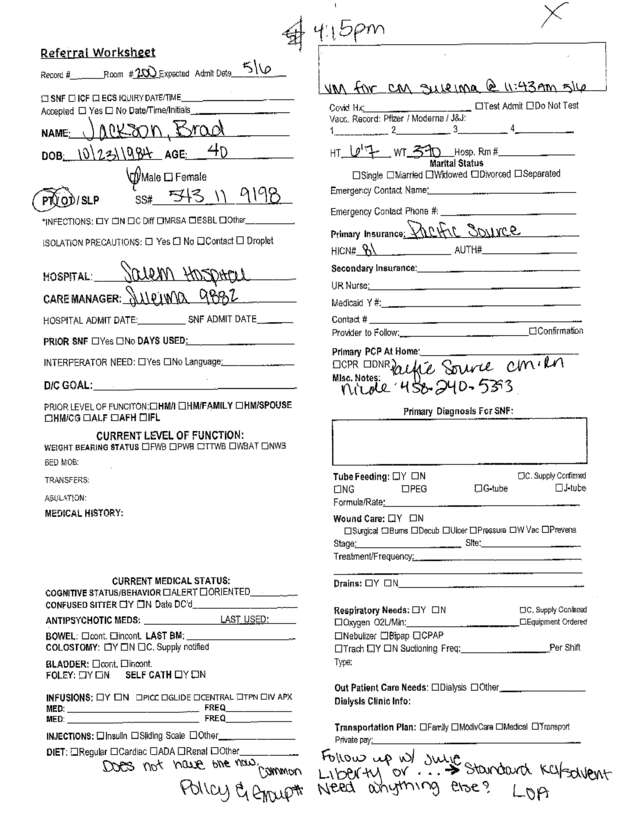 4:15pm
X
Referral Worksheet
Record #________Room #200 Expected Admit Date 5/6
☐ SNF ☐ ICF ☐ ECS IQUIRY DATE/TIME
Accepted ☐ Yes ☐ No Date/Time/Initials
NAME: Jackson, Brad
DOB: 10/23/1984 AGE: 40
☑ Male ☐ Female
PT/OT/SLP SS# 543 11 9198
*INFECTIONS: ☐Y ☐N ☐C Diff ☐MRSA ☐ESBL ☐Other
ISOLATION PRECAUTIONS: ☐ Yes ☐ No ☐Contact ☐ Droplet
HOSPITAL: Salem Hospital
CARE MANAGER: Suleima 9882
HOSPITAL ADMIT DATE:__________ SNF ADMIT DATE_______
PRIOR SNF ☐Yes ☐No DAYS USED:
INTERPERATOR NEED: ☐Yes ☐No Language:
D/C GOAL:
PRIOR LEVEL OF FUNCITON:☐HM/I ☐HM/FAMILY ☐HM/SPOUSE
☐HM/CG ☐ALF ☐AFH ☐IFL
CURRENT LEVEL OF FUNCTION:
WEIGHT BEARING STATUS ☐FWB ☐PWB ☐TTWB ☐WBAT ☐NWB
BED MOB:
TRANSFERS:
ABULATION:
MEDICAL HISTORY:
CURRENT MEDICAL STATUS:
COGNITIVE STATUS/BEHAVIOR ☐ALERT ☐ORIENTED
CONFUSED SITTER ☐Y ☐N Date DC'd
ANTIPSYCHOTIC MEDS: ____________ LAST USED:
BOWEL: ☐cont. ☐incont. LAST BM:
COLOSTOMY: ☐Y ☐N ☐C. Supply notified
BLADDER: ☐cont. ☐incont.
FOLEY: ☐Y ☐N SELF CATH ☐Y ☐N
INFUSIONS: ☐Y ☐N ☐PICC ☐GLIDE ☐CENTRAL ☐TPN ☐IV APX
MED: ____________ FREQ
MED: ____________ FREQ
INJECTIONS: ☐Insulin ☐Sliding Scale ☐Other
DIET: ☐Regular ☐Cardiac ☐ADA ☐Renal ☐Other
Does not have one now. common
Policy & Group#
VM for CM Suleima @ 11:43Am 5/6
Covid Hx:____________ ☐Test Admit ☐Do Not Test
Vacc. Record: Pfizer / Moderna / J&J:
1____________2____________3____________4
HT 6'7 WT 390 Hosp. Rm#
Marital Status
☐Single ☐Married ☐Widowed ☐Divorced ☐Separated
Emergency Contact Name:
Emergency Contact Phone #:
Primary Insurance: Pacific Source
HICN# ____________ AUTH#
Secondary Insurance:
UR Nurse:
Medicaid Y #:
Contact #
Provider to Follow:____________ ☐Confirmation
Primary PCP At Home:
☐CPR ☐DNR Pacific Source CM: RN
Misc. Notes: Nicole 458-240-5393
Primary Diagnosis For SNF:
Tube Feeding: ☐Y ☐N ☐C. Supply Confirmed
☐NG ☐PEG ☐G-tube ☐J-tube
Formula/Rate:
Wound Care: ☐Y ☐N
☐Surgical ☐Burns ☐Decub ☐Ulcer ☐Pressure ☐W Vac ☐Prevena
Stage:____________ Site:
Treatment/Frequency:
Drains: ☐Y ☐N
Respiratory Needs: ☐Y ☐N ☐C. Supply Confirmed
☐Oxygen O2L/Min:____________ ☐Equipment Ordered
☐Nebulizer ☐Bipap ☐CPAP
☐Trach ☐Y ☐N Suctioning Freq:____________Per Shift
Type:
Out Patient Care Needs: ☐Dialysis ☐Other
Dialysis Clinic Info:
Transportation Plan: ☐Family ☐ModivCare ☐Medical ☐Transport
Private pay:
Follow up w/ Julie
Liberty or ... → Standard KCI/solvent
Need anything else? LOA